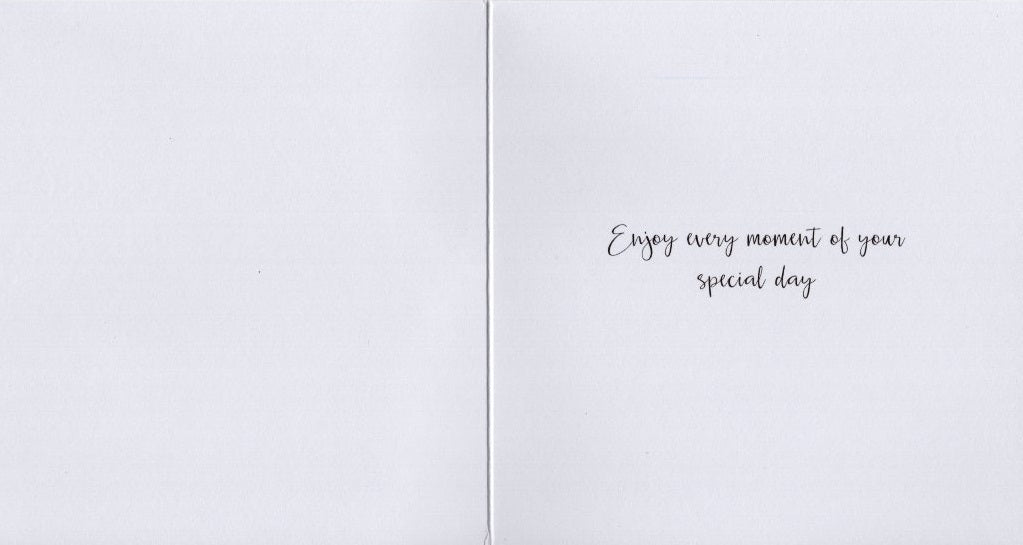 Enjoy every moment of your
special day